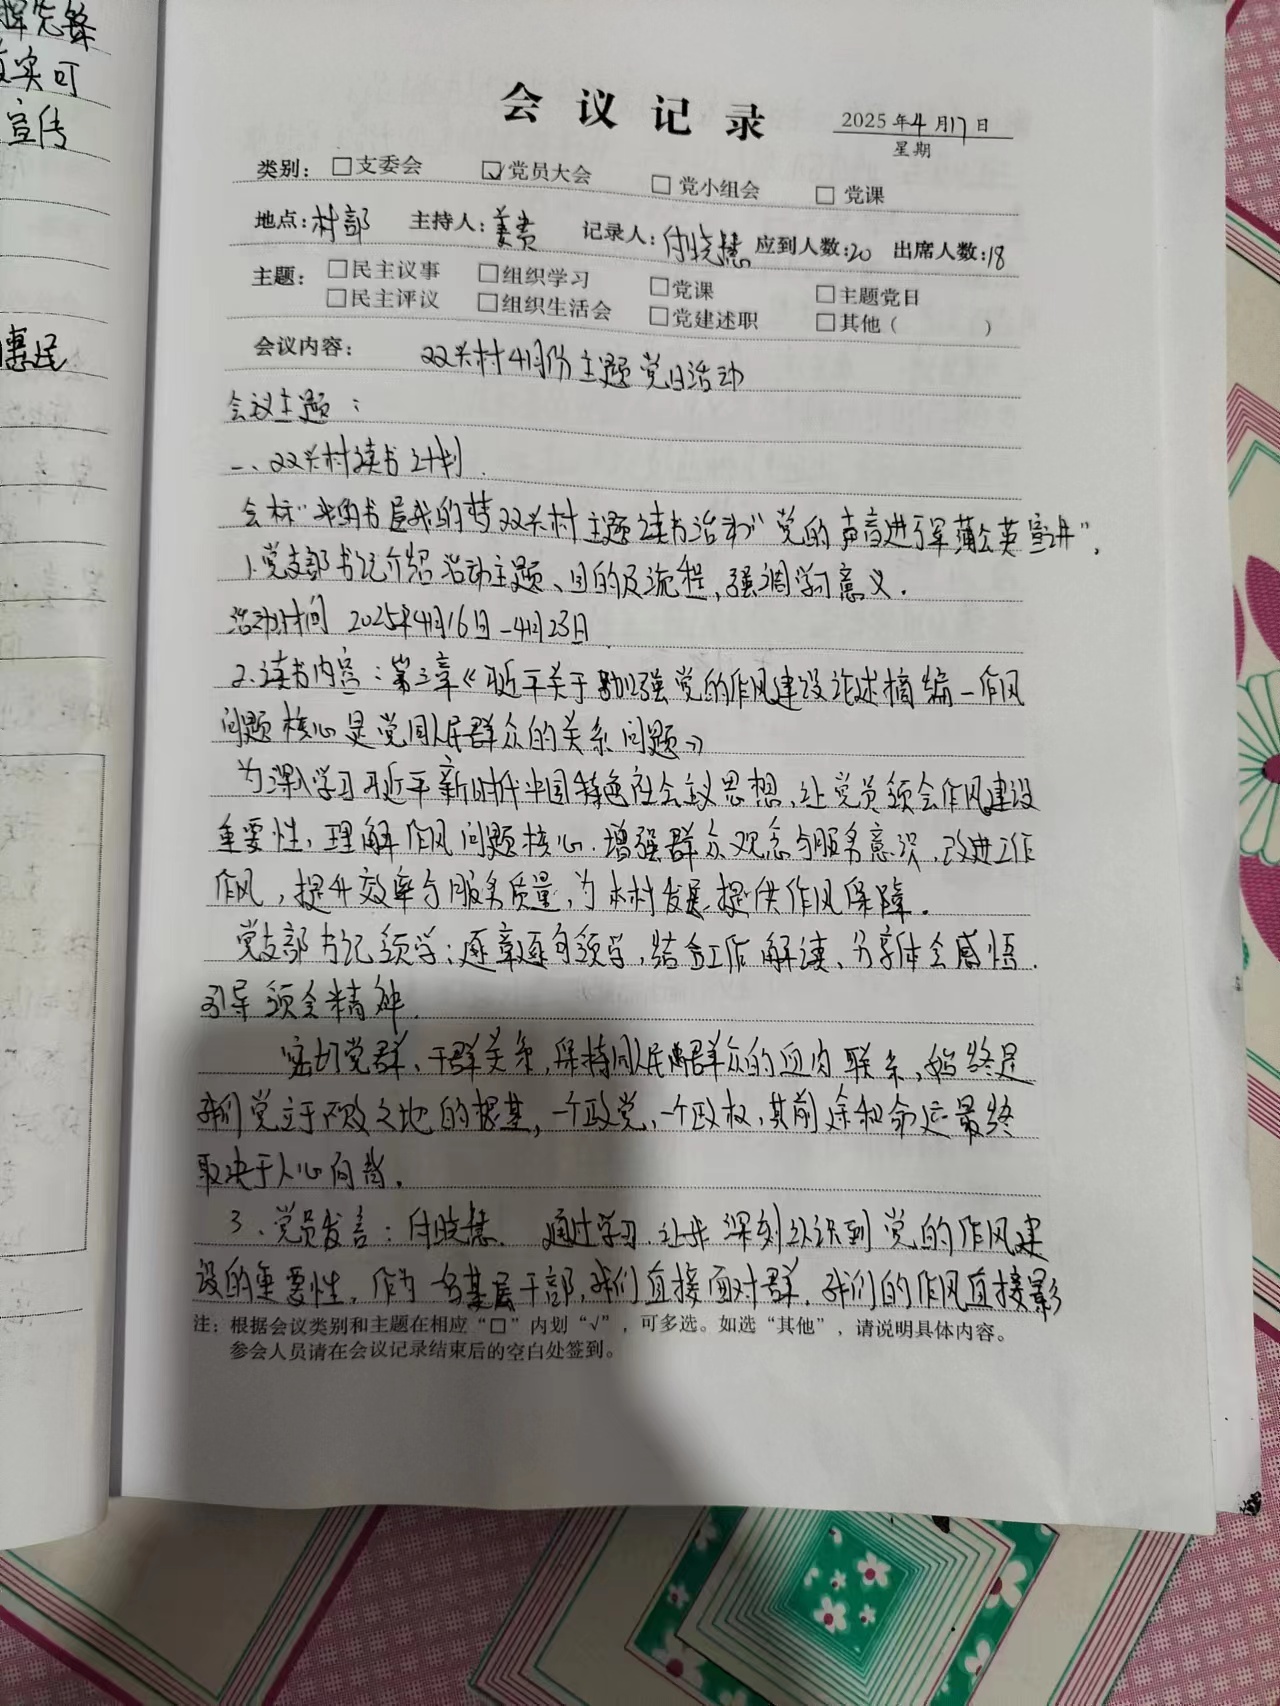 挥先锋
真实可
宣传
惠民
会议记录
2025年4月17日
星期
类别：□支委会 ☑党员大会 □党小组会 □党课
地点：村部 主持人：姜贵 记录人：付晓慧 应到人数：20 出席人数：18
主题：□民主议事 □组织学习 □党课 □主题党日
□民主评议 □组织生活会 □党建述职 □其他（ ）
会议内容： 双兴村4月份主题党日活动
会议主题：
一、双兴村读书计划.
会标"我的书屋我的梦双兴村主题读书活动""党的声音进万家蒲公英宣讲"。
1.党支部书记介绍活动主题、目的及流程，强调学习意义.
活动时间 2025年4月16日-4月23日
2.读书内容：第三章《习近平关于加强党的作风建设论述摘编-作风
问题核心是党同人民群众的关系问题》
为深入学习习近平新时代中国特色社会主义思想，让党员领会作风建设
重要性，理解作风问题核心.增强群众观念与服务意识，改进工作
作风，提升效率与服务质量，为本村发展提供作风保障.
党支部书记领学：逐章逐句领学，结合工作解读、分享体会感悟.
引导领会精神.
密切党群、干群关系，保持同人民群众的血肉联系，始终是
我们党立于不败之地的根基，一个政党，一个政权，其前途和命运最终
取决于人心向背.
3.党员发言：付晓慧. 通过学习.让我深刻认识到党的作风建
设的重要性，作为名基层干部，我们直接面对群.我们的作风直接影
注：根据会议类别和主题在相应"□"内划"√"，可多选。如选"其他"，请说明具体内容。
参会人员请在会议记录结束后的空白处签到。